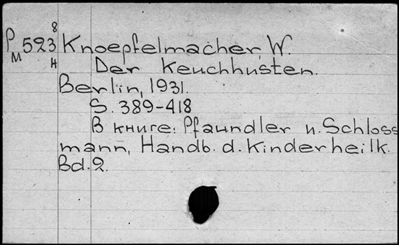 8
P 523 Knoepfelmacher, W.
M H Der Keuchhusten.
Berlin, 1931.
S. 389-418
В книге: Pfaundler u. Schloss
mann, Handb. d. Kinderheilk.
Bd. 2.